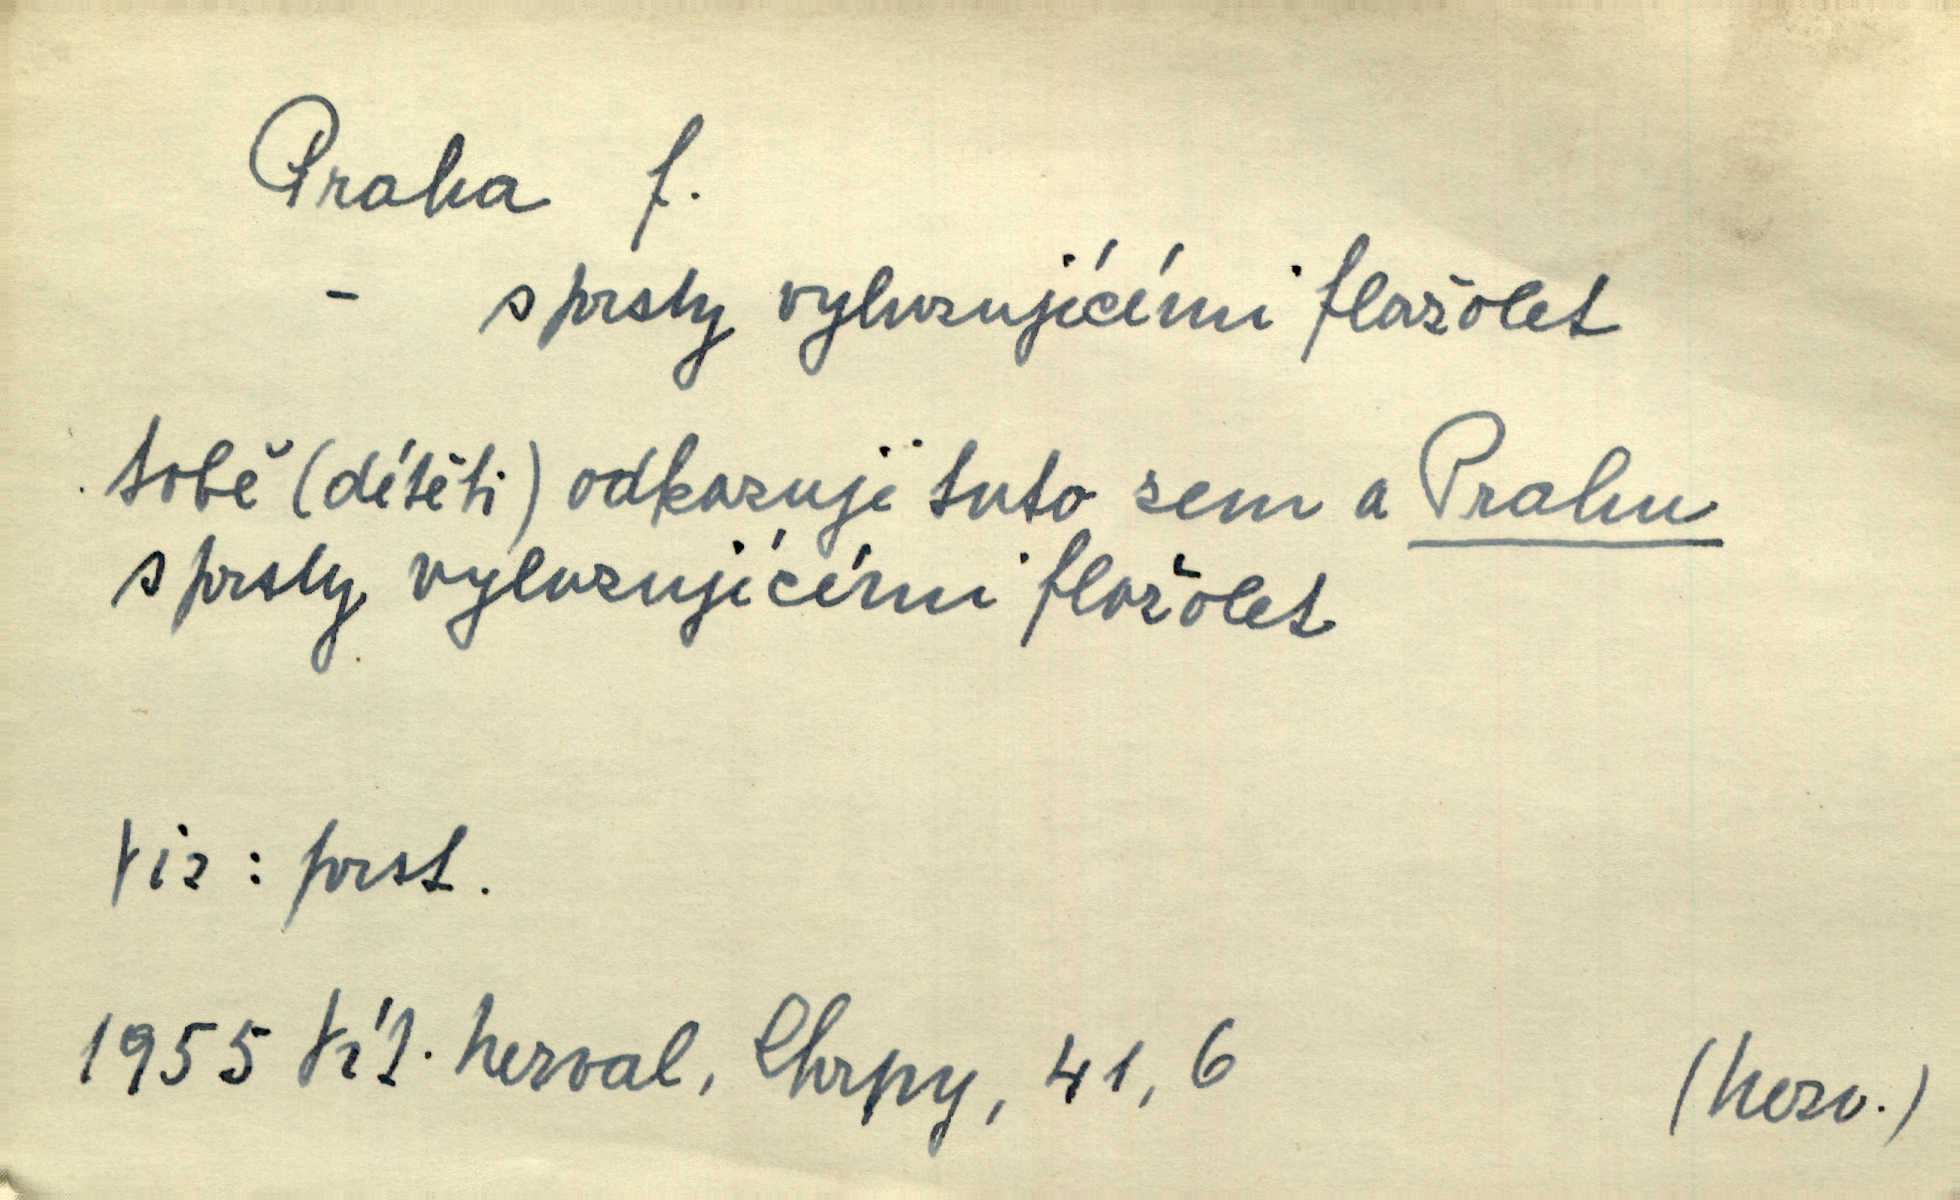 Praha f.
- s prsty vyluzujícími flažolet
tobě (dítěti) odkazuji tuto zem a Prahu
s prsty vyluzujícími flažolet
Viz : prst.
1955 Vít. Nezval, Chrpy, 41, 6 (Nezv.)